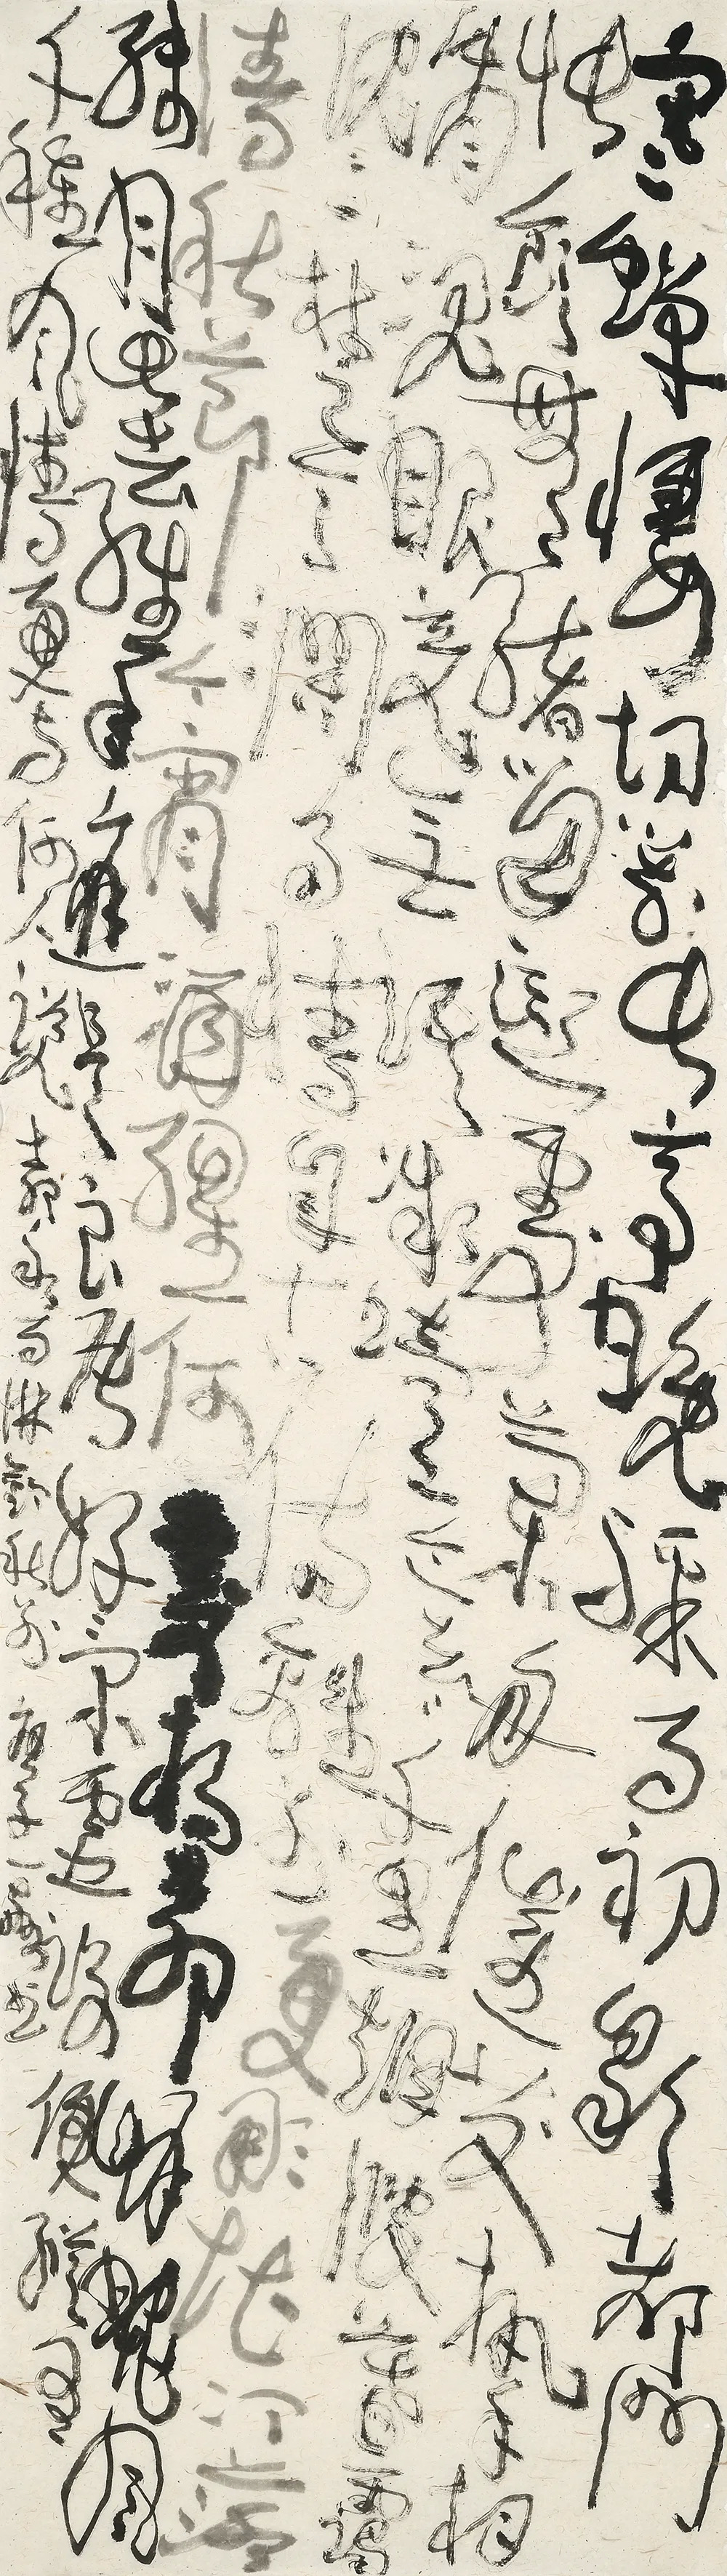 寒〻蟬悽切對長亭晚驟雨初歇都門
帳飲無緒留戀處蘭舟催發執手相
看淚眼竟無語凝噎念去〻千里煙波暮靄
沈〻楚天闊多情自古傷離別更那堪冷落
清秋節今宵酒醒何處楊柳岸曉風
殘月此去經年應是良辰好景虛設便縱有
千種風情更與何人說 柳永雨淋鈴秋別 庚子書